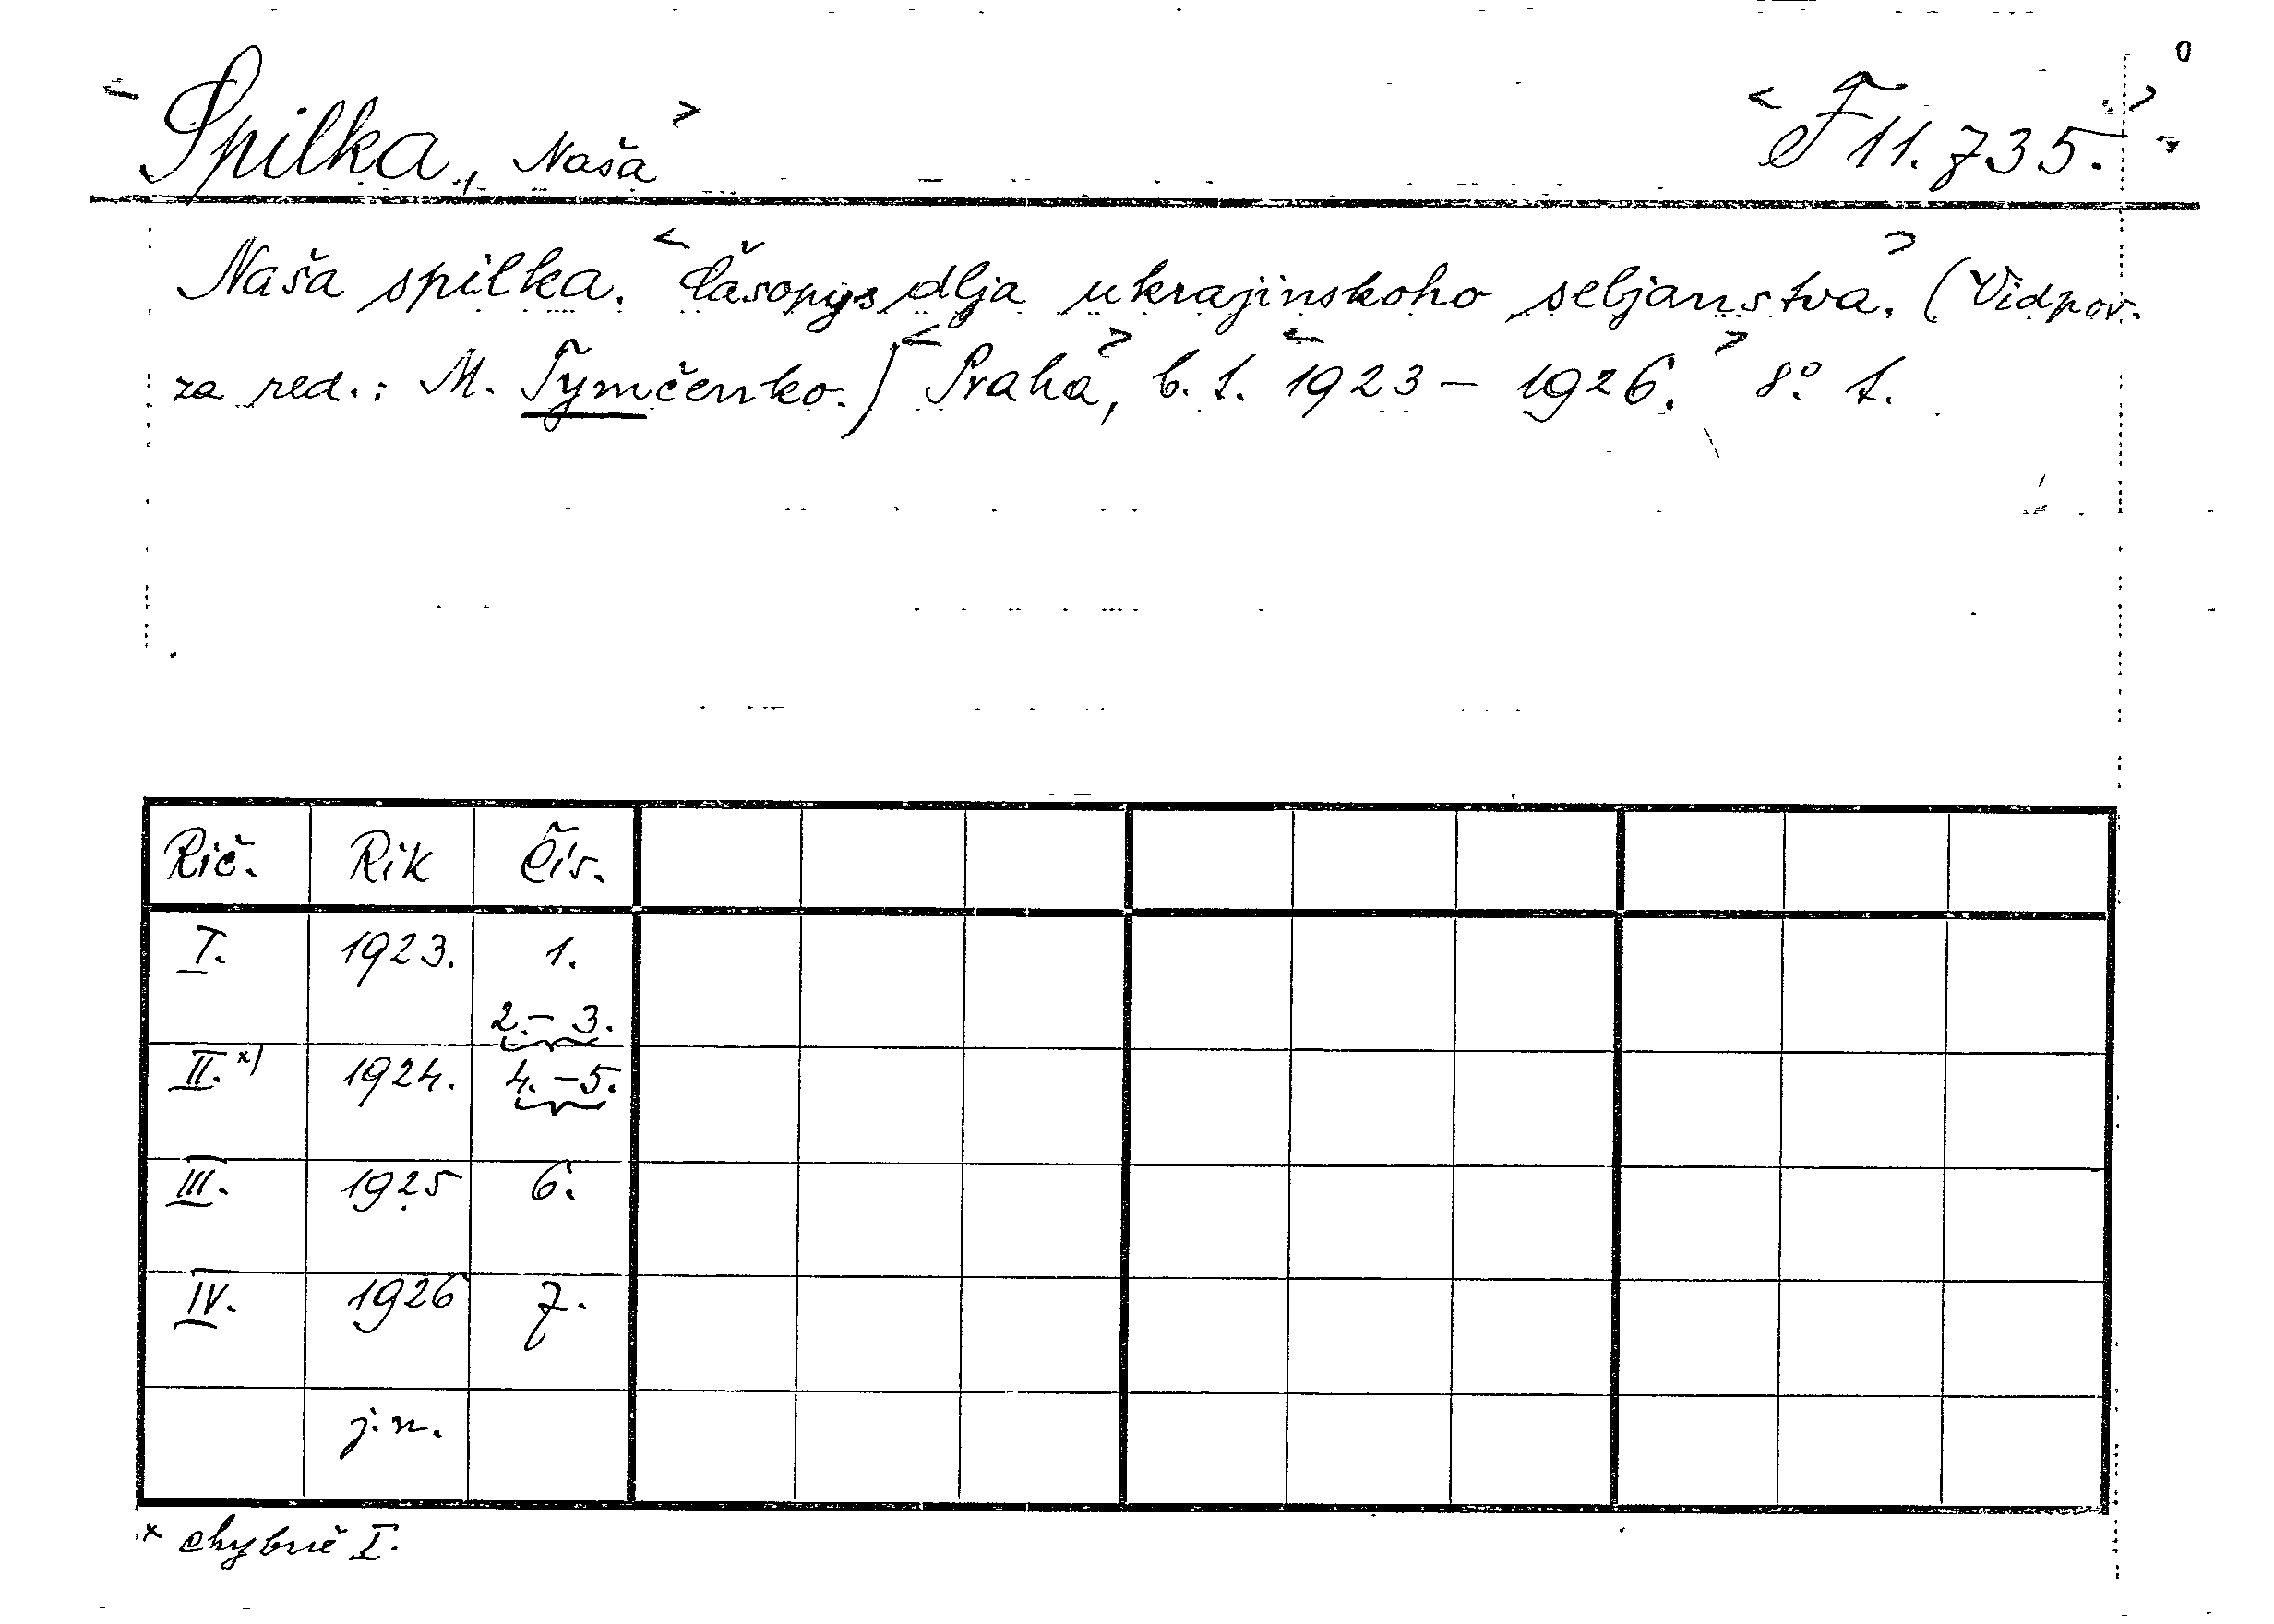 <Spilka, Naša> <F 11.735.>
Naša spilka. <Časopys dlja ukrajinskoho seljanstva.> (Vidpov.
za red.: M. Tymčenko.) <Praha>, b. t. <1923 – 1926.> 8° t.
Rič. Rik Čís.
I. 1923. 1.
2.– 3.
II.x) 1924. 4. – 5.
III. 1925 6.
IV. 1926 7.
j. n.
x chybně I.